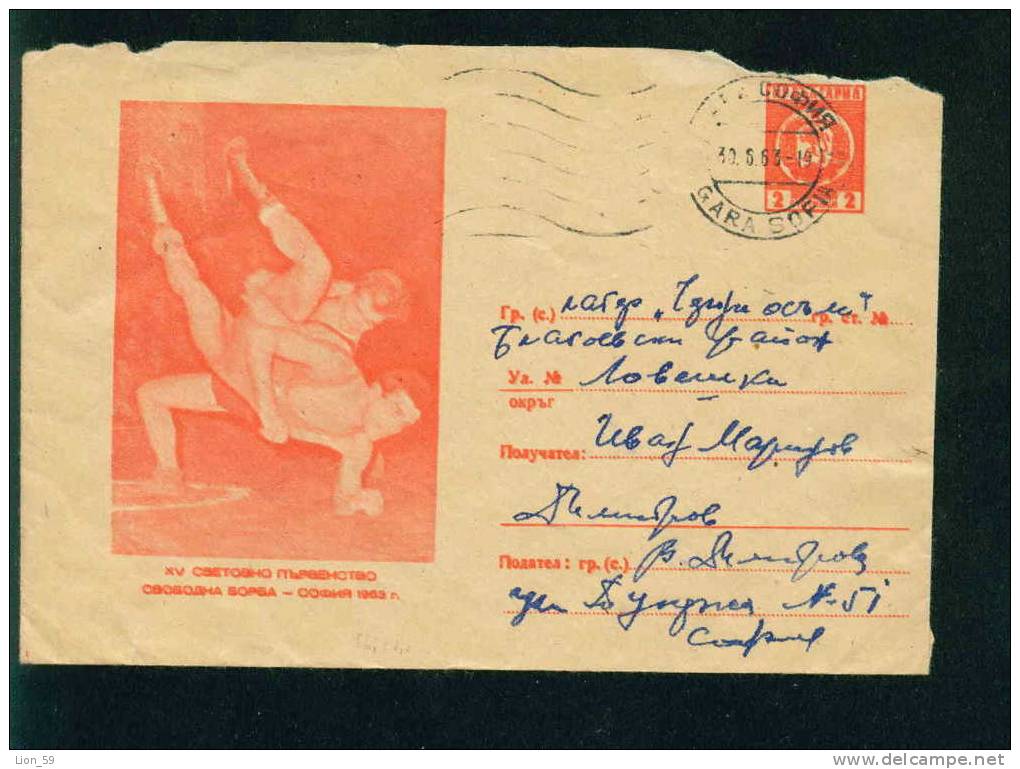 ГАРА СОФИЯ
30.6.63-19
GARA SOFIA
2 2
Гр. (с.) лагер гр. ст. №
район
Ул. № Ловешки
окръг
Получател: Иван Маринов
Димитров
Подател: гр. (с.) В. Димитров
ул. Дунджа № 51
София
XV СВЕТОВНО ПЪРВЕНСТВО
СВОБОДНА БОРБА – СОФИЯ 1963 г.
Lion_59
delcampe.net